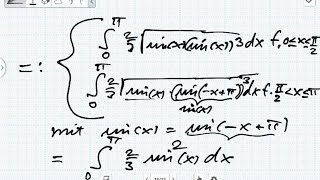 =: { ∫₀^π 2/3 √(sin(x)(sin(x))³) dx f. 0≤x≤π/2
∫₀^π 2/3 √(sin(x)(sin(-x+π))³) dx f. π/2<x≤π
sin(x)
mit sin(x) = sin(-x+π)
= ∫₀^π 2/3 sin²(x) dx